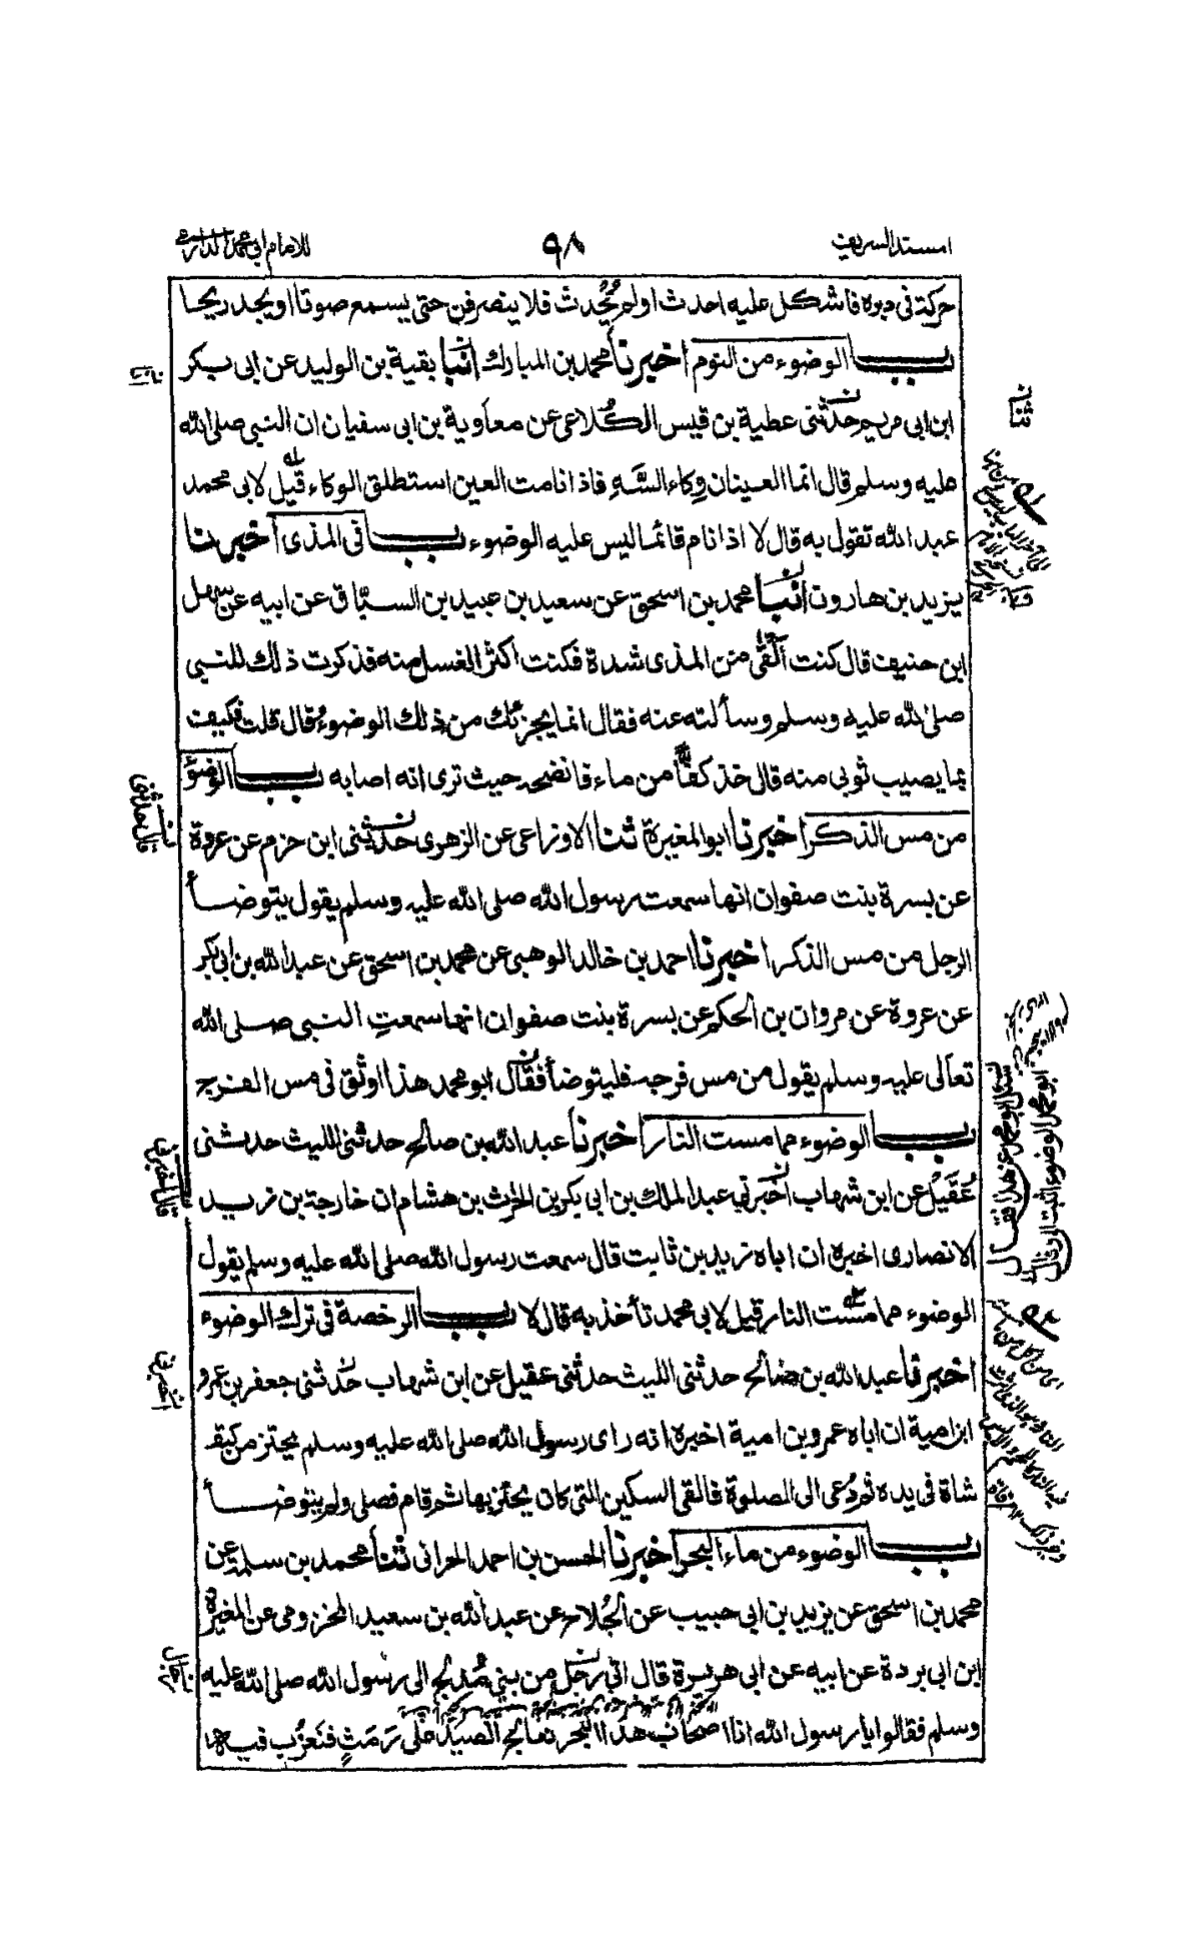 المسند الشريف
٩٨
للامام ابي محمد الدارمي
حركة في دبره فاشكل عليه احدث اولم يُحْدث فلا ينصرفن حتى يسمع صوتا او يجد ريحا
باب الوضوء من النوم اخبرنا محمد بن المبارك انبأ بقية بن الوليد عن ابى بكر
ابن ابى مريم حدثنى عطية بن قيس الكُلاعى عن معاوية بن ابى سفيان ان النبى صلى الله
عليه وسلم قال انما العينان وِكاء السَّهِ فاذا نامت العين استطلق الوكاء قيل لابى محمد
عبد الله تقول به قال لا اذا نام قائما ليس عليه الوضوء باب فى المذى اخبرنا
يزيد بن هارون انبأ محمد بن اسحق عن سعيد بن عبيد بن السبّاق عن ابيه عن سهل
ابن حنيف قال كنت القى من المذى شدة فكنت اكثر الغسل منه فذكرت ذلك للنبى
صلى الله عليه وسلم وسألته عنه فقال انما يجزئك من ذلك الوضوء قال قلت فكيف
بما يصيب ثوبى منه قال خذ كفّا من ماء فانضحه حيث ترى انه اصابه باب الوضؤ
من مس الذكر اخبرنا ابو المغيرة ثنا الاوزاعى عن الزهرى حدثنى ابن حزم عن عروة
عن بسرة بنت صفوان انها سمعت رسول الله صلى الله عليه وسلم يقول يتوضأ
الرجل من مس الذكر اخبرنا احمد بن خالد الوهبى عن محمد بن اسحق عن عبد الله بن ابى بكر
عن عروة عن مروان بن الحكم عن بسرة بنت صفوان انها سمعتِ النبى صلى الله
تعالى عليه وسلم يقول من مس فرجه فليتوضأ فقال ابو محمد هذا اوثق فى مس الفرج
باب الوضوء مما مست النار اخبرنا عبد الله بن صالح حدثنى الليث حدثنى
عُقَيْلٌ عن ابن شهاب اخبرنى عبد الملك بن ابى بكر بن الحرث بن هشام ان خارجة بن زيد
الانصارى اخبره ان اباه زيد بن ثابت قال سمعت رسول الله صلى الله عليه وسلم يقول
الوضوء مما مست النار قيل لابى محمد تأخذ به قال لا باب الرخصة فى ترك الوضوء
اخبرنا عبد الله بن صالح حدثنى الليث حدثنى عقيل عن ابن شهاب حدثنى جعفر بن عمرو
ابن امية ان اباه عمرو بن امية اخبره انه راى رسول الله صلى الله عليه وسلم يحتز من كتف
شاة فى يده ثم دُعى الى الصلوة فالقى السكين التى كان يحتز بها ثم قام فصلى ولم يتوضأ
باب الوضوء من ماء البحر اخبرنا الحسن بن احمد الحرانى ثنا محمد بن سلمة عن
محمد بن اسحق عن يزيد بن ابى حبيب عن الجُلاح عن عبد الله بن سعيد المخزومى عن المغيرة
ابن ابى بردة عن ابيه عن ابى هريرة قال اتى رجال من بنى مُدلج الى رسول الله صلى الله عليه
وسلم فقالوا يا رسول الله انا اصحاب هذا البحر نعالج الصيد على رَمَثٍ فنَعْزُب فيه
ثنا
سئل ابو محمد عن هذا فقال
ابو محمد الوضوء اثبت او قال
قال حدثنى
قال اخبرنى
اخبرنى